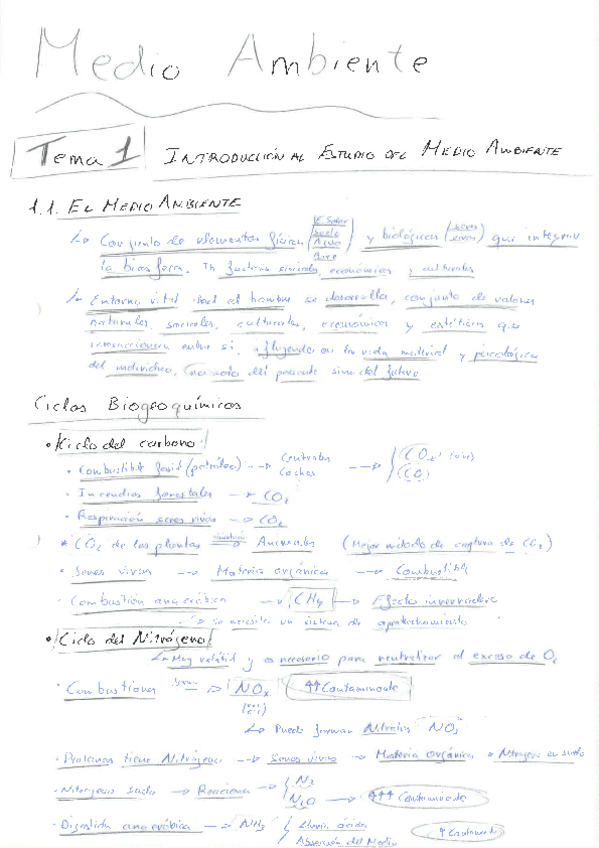 Medio Ambiente
Tema 1 INTRODUCCIÓN AL ESTUDIO DEL MEDIO AMBIENTE
1.1. EL MEDIO AMBIENTE
↳ Conjunto de elementos físicos (suelo Agua Aire) y biológicos (seres vivos) que integran
la biosfera. factores sociales económicos y culturales
↳ Entorno vital el hombre se desarrolla, conjunto de valores
naturales, sociales, culturales, económicos y estéticos que
interaccionan entre sí, influyendo en la vida material y psicológica
del individuo, no solo del presente sino del futuro
Ciclos Biogeoquímicos
• Ciclo del carbono
• Combustible fosil (petróleo) → Centrales Coches → CO2 (CO)
• Incendios forestales → CO2
• Respiración seres vivos → CO2
* CO2 de las plantas → Animales (Mejor método de captura de CO2)
• Seres vivos → Materia orgánica → Combustible
· Combustión anaeróbica → CH4 → Efecto invernadero
↳ se necesita un sistema de aprovechamiento
• Ciclo del Nitrógeno
↳ Muy volátil y es necesario para neutralizar el exceso de O2
· Combustiones → NOx ↑↑ Contaminante
↳ Puede formar Nitratos NO3
· Proteinas tiene Nitrógeno → Seres vivos → Materia orgánica → Nitrogeno en suelo
· Nitrogeno suelo → Reacciona → N2 N2O → ↑↑↑ Contaminante
· Digestión anaeróbica → NH3 Lluvia ácida ↑ Contaminante
Absorción del Medio